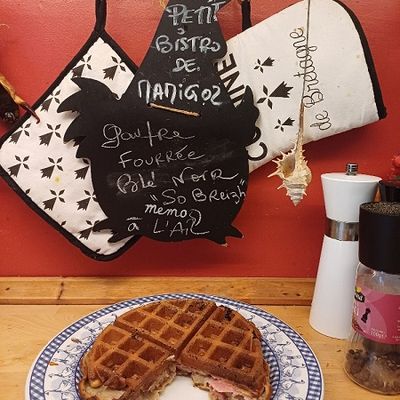 PETIT
BISTRO
DE
MAMIGOZ
Gaufre
FOURRÉE
Blé NOIR
"SO BREIZH"
memo
à L'AIL
de Bretagne